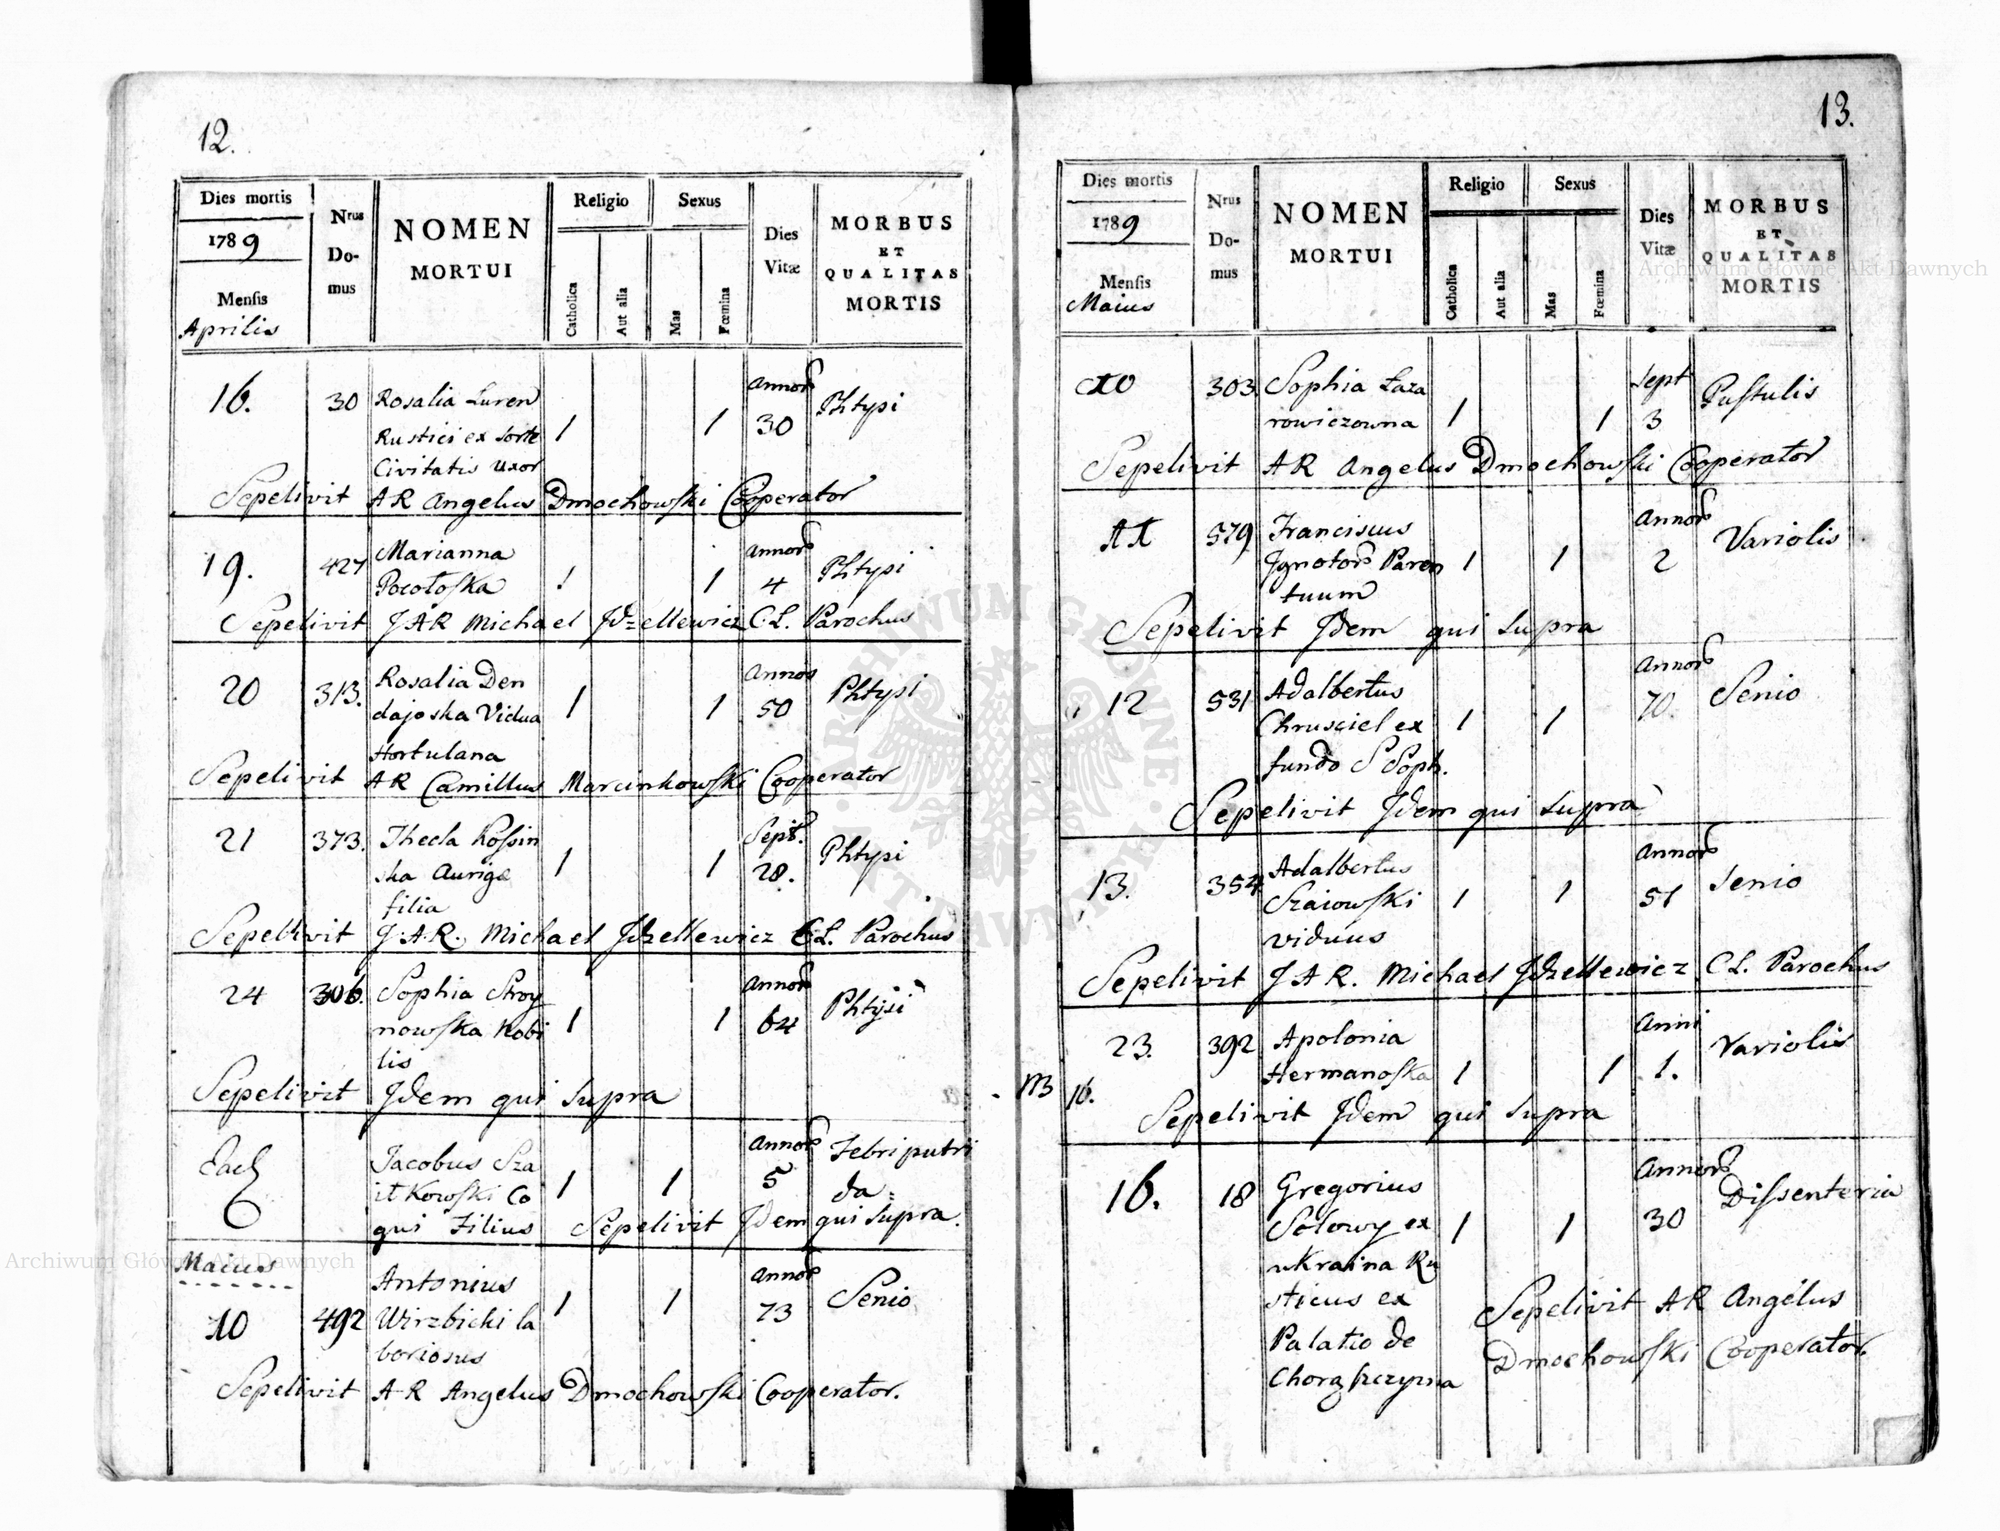 12.
Dies mortis
1789
Mensis
Aprilis
Nrus Do-
mus
NOMEN
MORTUI
Religio
Catholica
Aut alia
Sexus
Mas
Fœmina
Dies
Vitæ
MORBUS
ET
QUALITAS
MORTIS
16. 30 Rosalia Luren 1 1 Annor 30 Phtysi
Rustici ex sorte
Civitatis Uxor
Sepelivit AR Angelus Dmochowski Cooperator
19. 427 Marianna 1 1 Annor 4 Phtysi
Pocołoska
Sepelivit JAR Michael Jdzellewicz C.L. Parochus
20 313. Rosalia Den 1 1 Annos 50 Phtysi
dajoska Vidua
Hortulana
Sepelivit AR Camillus Marcinkowski Cooperator
21 373. Thecla Kossin 1 1 Sept. 28. Phtysi
ska Aurigæ
filia
Sepelivit J.A.R. Michael Jdzellewicz C.L. Parochus
24 306. Sophia Stroy 1 1 Annor 64 Phtysi
nowska Nobi
lis
Sepelivit Jdem qui supra
Ead Jacobus Sza 1 1 Annor 5 Febri putri
itkowski Co da=
qui Filius Sepelivit Jdem qui supra.
Maius
10 492 Antonius 1 1 Annor 73 Senio
Wirzbicki la
boriosus
Sepelivit AR Angelus Dmochowski Cooperator.
13.
Dies mortis
1789
Mensis
Maius
Nrus
Do-
mus
NOMEN
MORTUI
Religio
Catholica
Aut alia
Sexus
Mas
Fœmina
Dies
Vitæ
MORBUS
ET
QUALITAS
MORTIS
10 303. Sophia Laza 1 1 Sept 3 Pustulis
rowiczowna
Sepelivit AR Angelus Dmochowski Cooperator
11 579 Franciscus 1 1 Annor 2 Variolis
Jgnotor Paren
tuum
Sepelivit Jdem qui supra
12 531 Adalbertus 1 1 Annor 70. Senio
Chrusciel ex
fundo S Soph.
Sepelivit Jdem qui supra
13. 354 Adalbertus 1 1 Annor 51 Senio
Szaiowski
viduus
Sepelivit JAR. Michael Jdzellewicz C.L. Parochus
23. 392 Apolonia 1 1 Anni 1. Variolis
Hermanoska
NB 16.
Sepelivit Jdem qui supra
16. 18 Gregorius 1 1 Annor 30 Dissenteria
Sołowy ex
ukraina Ru
sticus ex Sepelivit AR Angelus
Palatio de Dmochowski Cooperator.
Chorąszczyzna
Archiwum Główne Akt Dawnych
Archiwum Główne Akt Dawnych
ARCHIWUM GŁÓWNE · AKT DAWNYCH ·